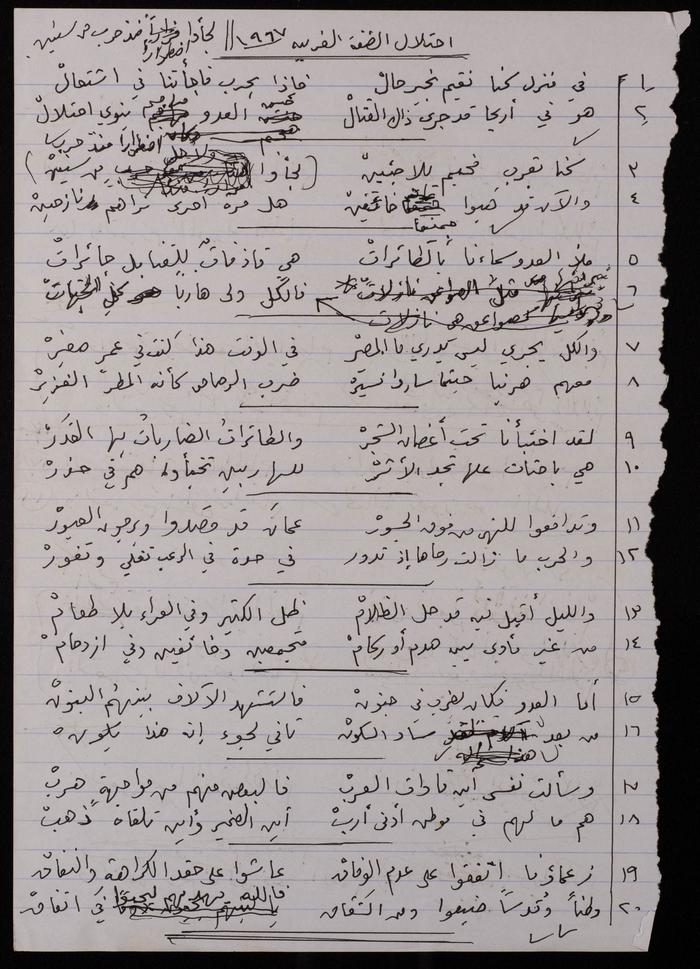 احتلال الضفة الغربيه ١٩٦٧
١ في منزل كنا نقيم بخير حالْ فإذا بحرب فاجأتنا في اشتعالْ
٢ هو في أريحا قد جرى ذاك القتالْ العدو ينوي احتلالْ
٣ كنا بقرب مخيم للاجئينْ (لجأوا من سنينْ)
٤ والآن قد هبوا خائفينْ هل مرة أخرى نراهم نازحينْ
٥ ملأ العدو سماءنا بالطائراتْ هي قاذفاتٌ للقنابل حائراتْ
٦ مثل الصواعق نازلاتْ فالكل ولى هارباً كل الجهاتْ
صواعق هي نازلات
٧ والكل يجري ليس يدري ما المصيرْ في الوقت هذا كنت في عمر صغيرْ
٨ معهم هربنا حيثما ساروا نسيرْ ضرب الرصاص كأنه المطر الغزيرْ
٩ لقد اختبأنا تحت أغصان الشجرْ والطائراتُ الضارباتُ بها القدرْ
١٠ هي باحثات علها تجد الأثرْ للهاربين تخبأوا هم في حذرْ
١١ وتدافعوا للنهر من فوق الجسورْ عمانَ قد قصدوا ويرجون العبورْ
١٢ والحرب ما زالت رحاها إذ تدور في حدة في الرعب تغلي وتفورْ
١٣ والليل أقبل فيه قد حل الظلامْ ظل الكثير وفي العراء بلا طعامْ
١٤ من غير مأوى بين هدم أو ركامْ متجمعين وخائفين وفي ازدحامْ
١٥ أما العدو فكان يضرب في جنونْ فاستشهد الآلاف بينهمُ البنونْ
١٦ من بعد ساد السكونْ ثاني لجوء إنه هذا يكون
١٧ وسألت نفسي أين قادات العربْ فالبعض منهم من مواجهة هربْ
١٨ هم ما لهم في موطن أدنى أربْ أين الضمير وأين تلقاه ذهبْ
١٩ زعماؤنا اتفقوا على عدم الوفاقْ عاشوا على حقد الكراهة والنفاقْ
٢٠ وطناً وقدساً ضيعوا في اتفاقْ